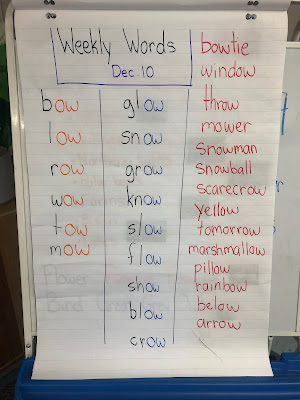 Weekly Words
Dec. 10
bow
low
row
wow
tow
mow
Flower
glow
snow
grow
know
slow
flow
show
blow
crow
bowtie
window
throw
mower
snowman
Snowball
scarecrow
yellow
tomorrow
marshmallow
pillow
rainbow
below
arrow